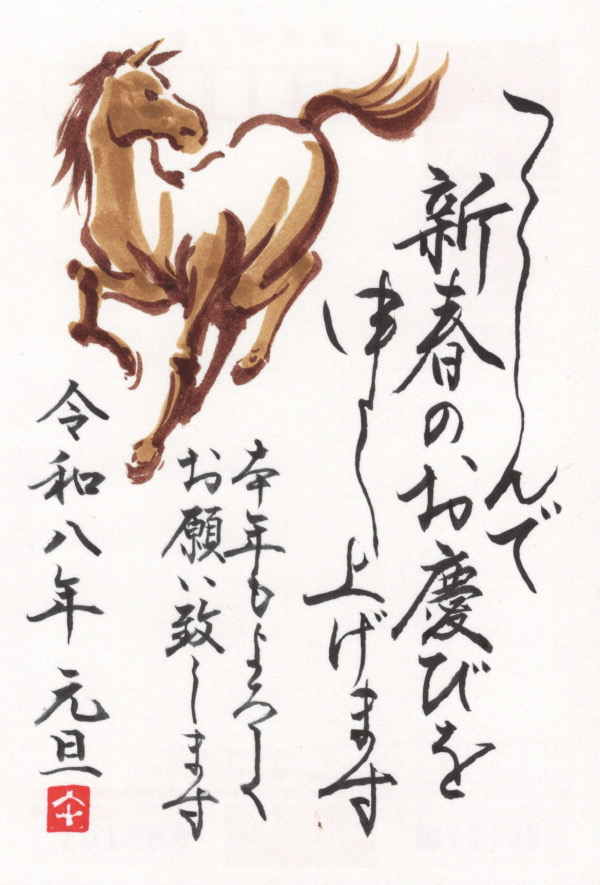 つつしんで
新春のお慶びを
申し上げます
本年もよろしく
お願い致します
令和八年 元旦
午